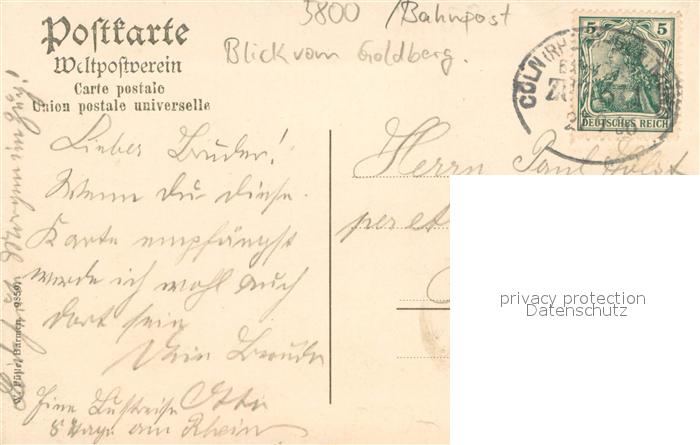 5800 /Bahnpost
Blick vom Goldberg.
Postkarte
Weltpostverein
Carte postale
Union postale universelle
5 5
DEUTSCHES REICH
CÖLN (RH.)
Lieber Bruder!
Wenn du diese
Karte empfängst
werde ich wohl auch
dort sein
Dein Bruder
Otto
Eine Lustreise
8 Tage am Rhein
Herrn Paul Holst
per
privacy protection
Datenschutz